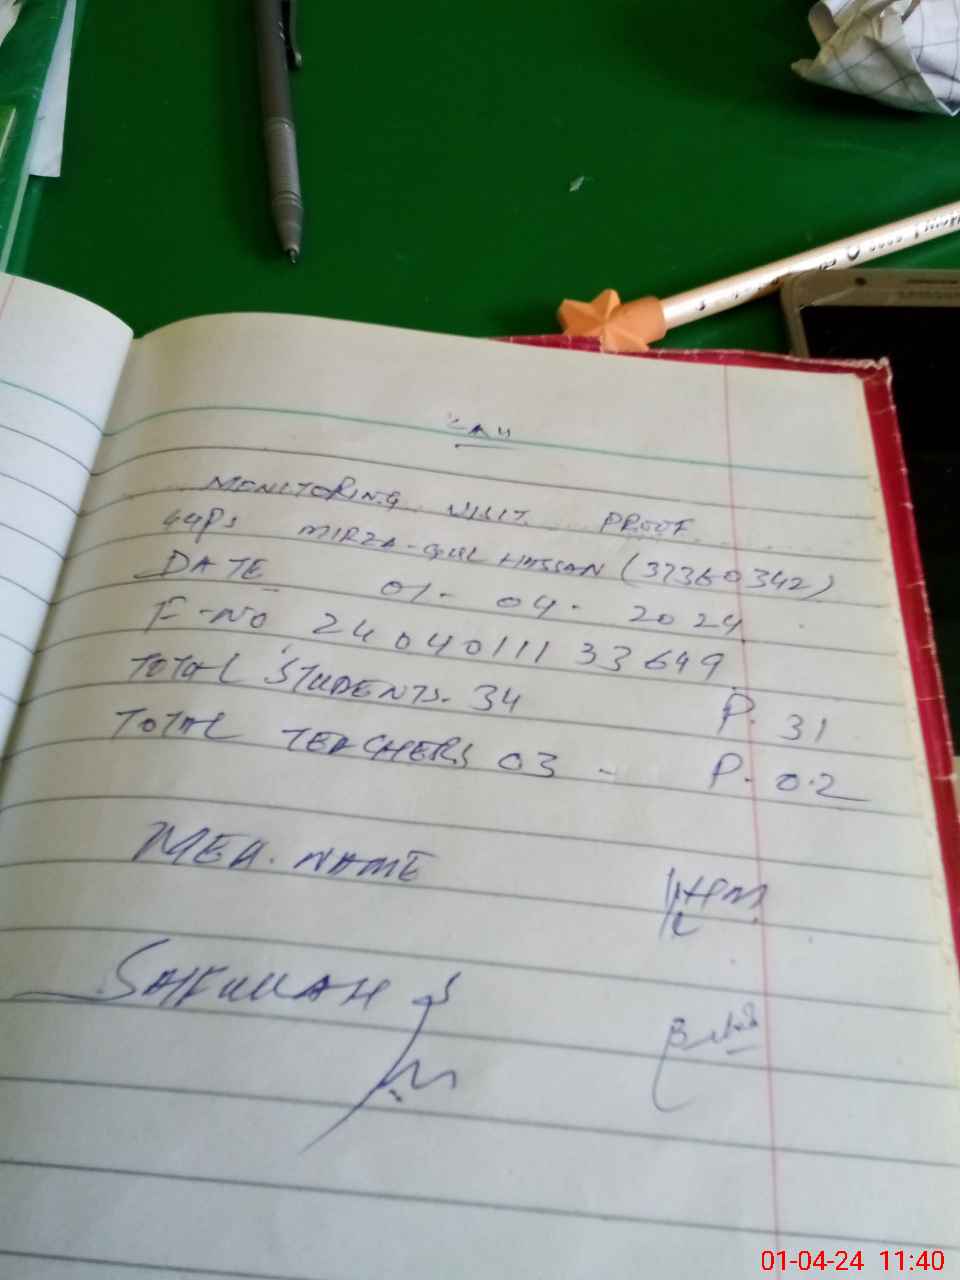 MENITORING VISIT PROOF
GGPS MIRZA-GUL HASSAN (37360342)
DATE 01-04-2024
F-NO 24040111133649
TOTAL STUDENTS. 34 P. 31
TOTAL TEACHERS 03 - P. 0.2
MEA. NAME
SAIFULLAH
01-04-24 11:40